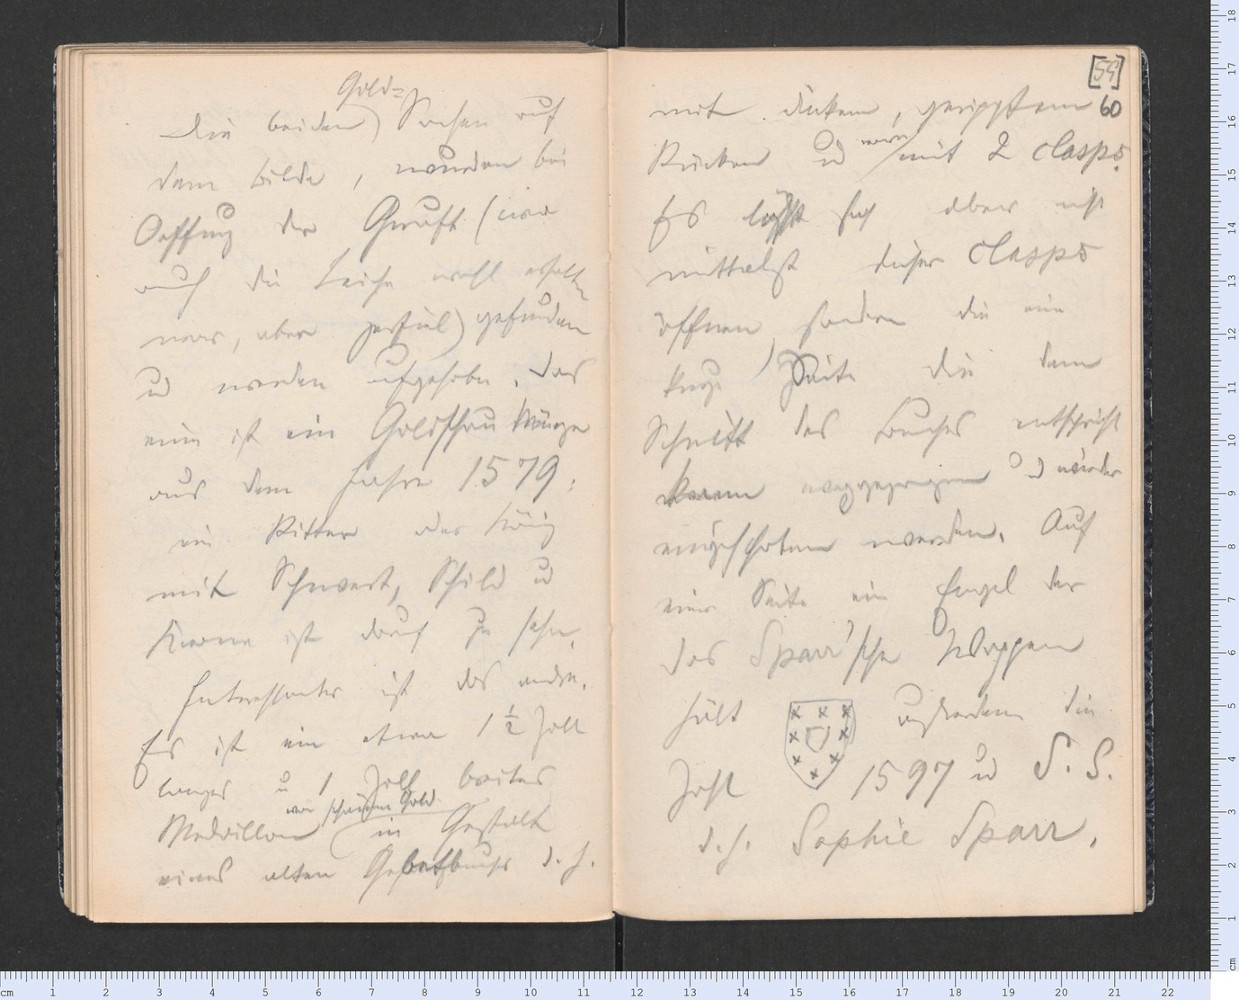 Gold-
Die beiden Sachen auf
dem Bilde, wurden bei
Oeffnung der Gruft (wo
auch die Leiche wohl erhalten
war, aber zerfiel) gefunden
u wurden aufgehoben. Das
eine ist ein Goldschau Münze
aus dem Jahre 1579;
ein Ritter oder König
mit Schwert, Schild u
Krone ist drauf zu sehn.
Interessanter ist das andre.
Es ist ein etwa 1 1/2 Zoll
langes u 1 Zoll breites
von schönem Gold
Medaillon in Gestalt
eines alten Gebetbuchs d. h.
[59]
60
mit dickem, geripptem
Rücken u mit 2 Clasps.
Es läßt sich aber nicht
mittelst dieser Clasps
öffnen sondern die eine
Seite die dem
Schnitt des Buches entspricht
kann u wieder
eingeschoben werden. Auf
einer Seite ein Engel der
das Sparr'sche Wappen
hält außerdem die
Zahl 1597 u S. S.
d. h. Sophie Sparr.